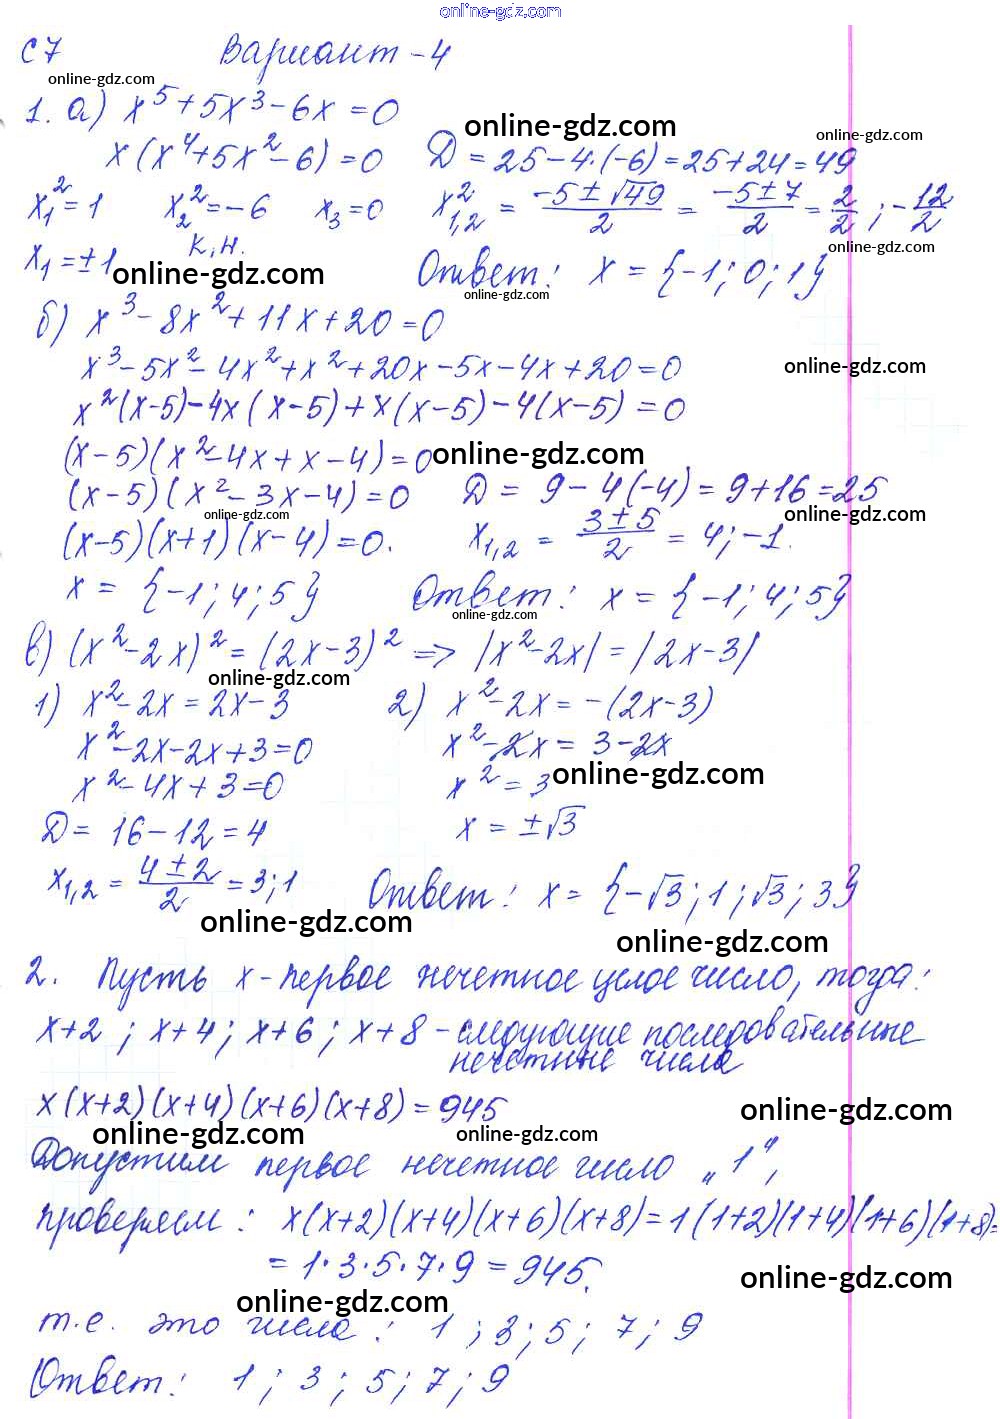 online-gdz.com
С7 Вариант-4
online-gdz.com
1. а) x⁵+5x³-6x=0
online-gdz.com online-gdz.com
x(x⁴+5x²-6)=0 Д=25-4·(-6)=25+24=49
x₁²=1 x₂²=-6 x₃=0 x²₁,₂ = (-5±√49)/2 = (-5±7)/2 = 2/2; -12/2
x₁=±1 к.н.
online-gdz.com online-gdz.com
Ответ: x={-1;0;1}
online-gdz.com
б) x³-8x²+11x+20=0
x³-5x²-4x²+x²+20x-5x-4x+20=0
online-gdz.com
x²(x-5)-4x(x-5)+x(x-5)-4(x-5)=0
(x-5)(x²-4x+x-4)=0
online-gdz.com
(x-5)(x²-3x-4)=0 Д=9-4(-4)=9+16=25
online-gdz.com online-gdz.com
(x-5)(x+1)(x-4)=0. x₁,₂ = (3±5)/2 = 4;-1.
x={-1;4;5} Ответ: x={-1;4;5}
online-gdz.com
в) (x²-2x)²=(2x-3)² => |x²-2x|=|2x-3|
online-gdz.com
1) x²-2x=2x-3 2) x²-2x=-(2x-3)
x²-2x-2x+3=0 x²-2x=3-2x
x²-4x+3=0 x²=3
online-gdz.com
Д=16-12=4 x=±√3
x₁,₂ = (4±2)/2 = 3;1 Ответ: x={-√3;1;√3;3}
online-gdz.com online-gdz.com
2. Пусть x-первое нечетное целое число, тогда:
x+2; x+4; x+6; x+8-следующие последовательные
нечетные числа
x(x+2)(x+4)(x+6)(x+8)=945
online-gdz.com
online-gdz.com online-gdz.com
Допустим первое нечетное число „1",
проверяем: x(x+2)(x+4)(x+6)(x+8)=1(1+2)(1+4)(1+6)(1+8)=
=1·3·5·7·9=945.
online-gdz.com
online-gdz.com
т.е. это числа: 1;3;5;7;9
Ответ: 1;3;5;7;9